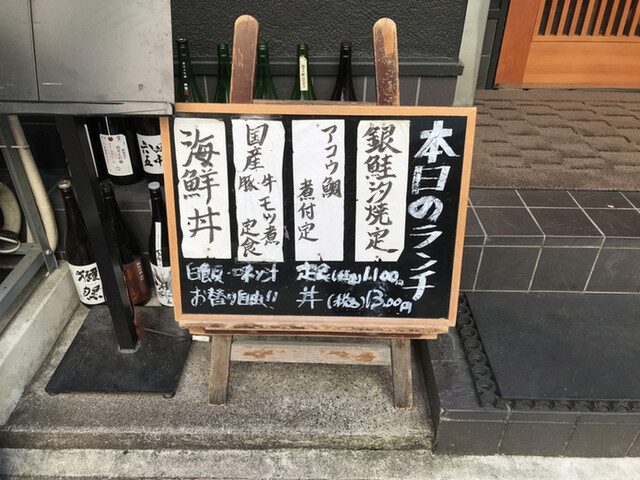 本日のランチ
銀鮭汐焼定
アコウ鯛
煮付定
国産 牛 豚 モツ煮
定食
海鮮丼
白飯・味噌汁
お替り自由!!
定食(税込)1,100円
丼(税込)1300円
獺祭